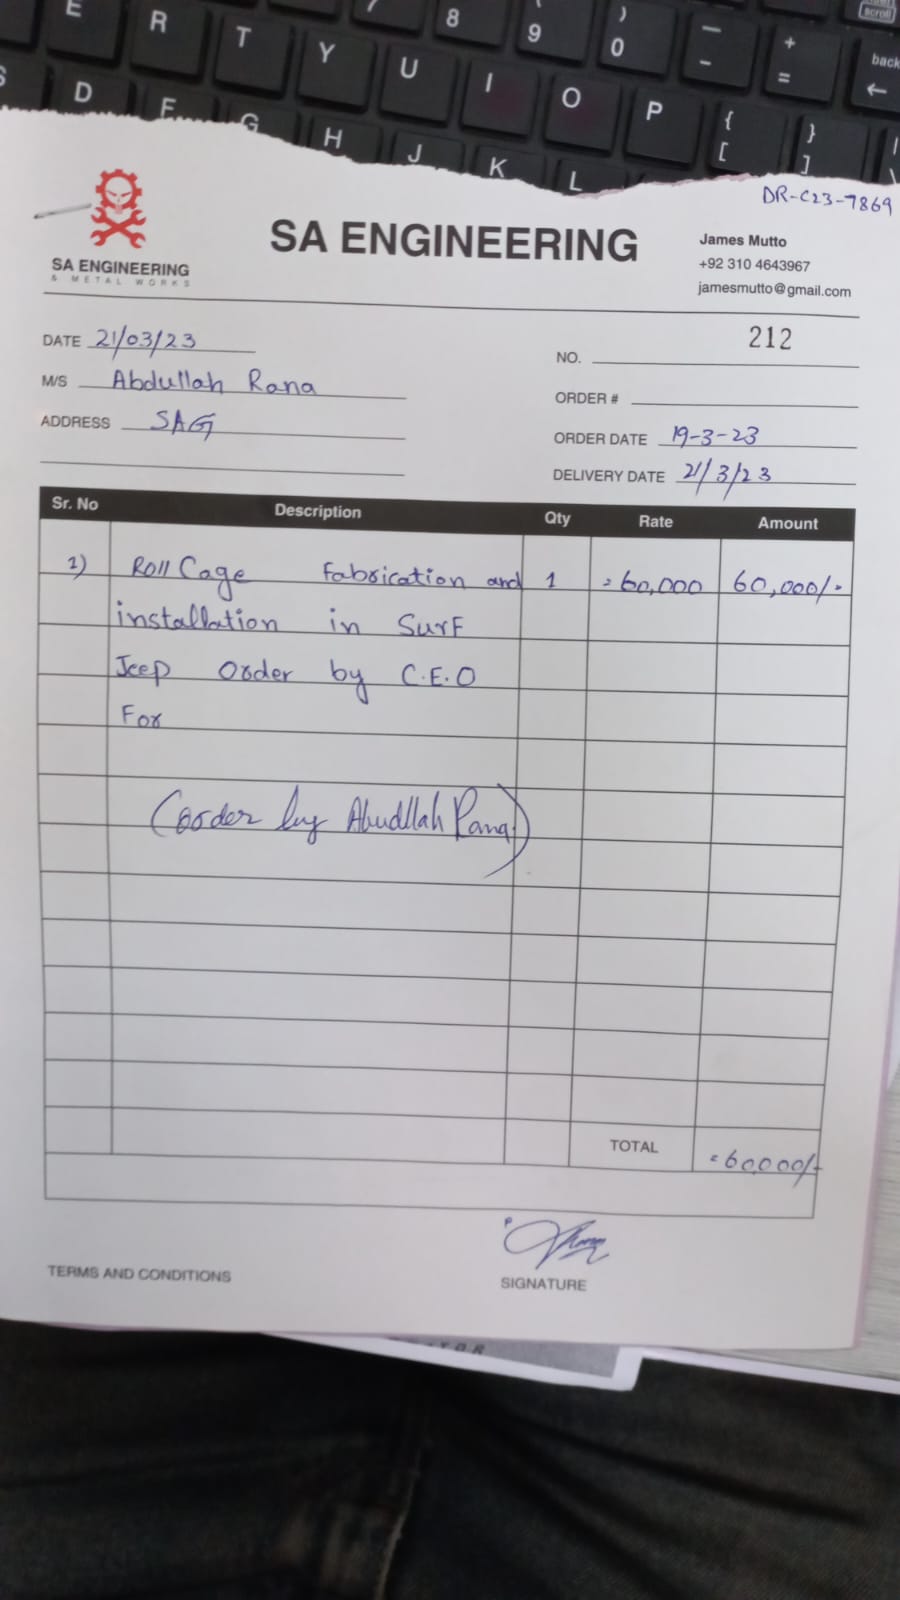 E R T Y U 8 9 ) 0 — - + = scroll back ←
S D F G H I O P { [ } ]
J K L
DR-C23-7869
SA ENGINEERING
& METAL WORKS
SA ENGINEERING
James Mutto
+92 310 4643967
jamesmutto@gmail.com
DATE 21/03/23
M/S Abdullah Rana
ADDRESS SAG
NO. 212
ORDER #
ORDER DATE 19-3-23
DELIVERY DATE 21/3/23
Sr. No Description Qty Rate Amount
1) Roll Cage Fabrication and 1 =60,000 60,000/-
installation in Surf
Jeep Order by C.E.O
For
(order by Abudllah Rana)
TOTAL =60,000/-
TERMS AND CONDITIONS
SIGNATURE